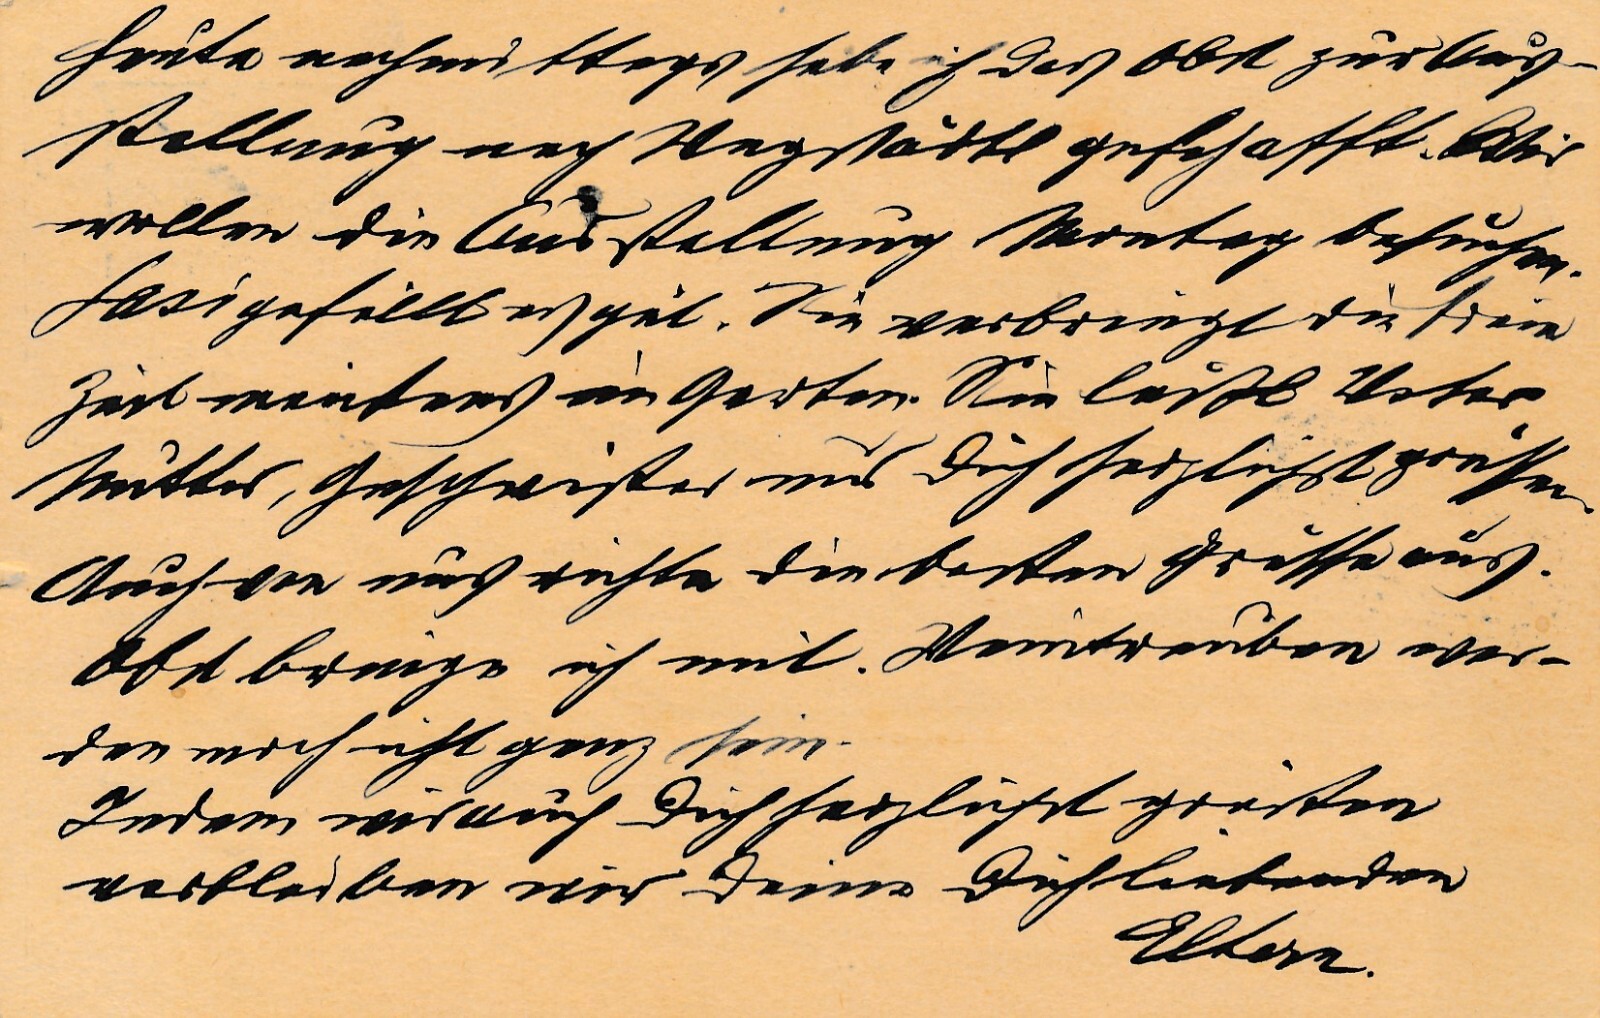 Heute nachmittags habe ich das Obst zur Aus-
stellung nach Wegstädtl geschafft. Wir
wollen die Ausstellung Montag besuchen.
gefällt es gut. Sie verbringt die freie
Zeit meistens im Garten. Sie läßt Vater
Mutter, Geschwister und Dich herzlichst grüssen.
Auch von uns richte die besten Grüsse aus.
Obst bringe ich mit. Weintrauben wer-
den noch nicht ganz sein.
Indem wir auch Dich herzlichst grüßen
verbleiben wir Deine Dich liebenden
Eltern.